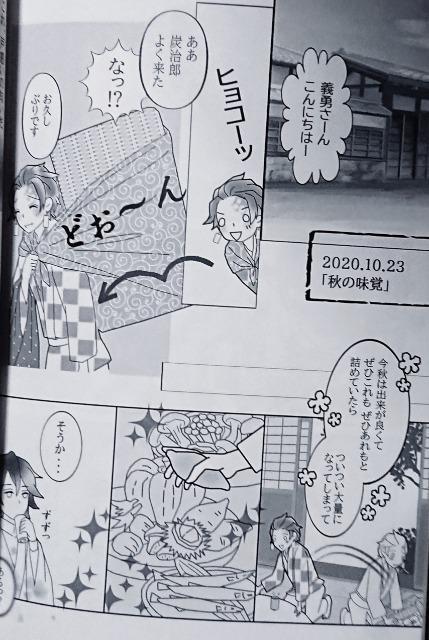 2020.10.23
「秋の味覚」
義勇さーん
こんにちはー
ヒョコーッ
ああ
炭治郎
よく来た
なっ!?
お久し
ぶりです
どお〜ん
今秋は出来が良くて
ぜひこれも ぜひあれもと
詰めていたら
ついつい大量に
なってしまって
そうか・・・
ずずっ